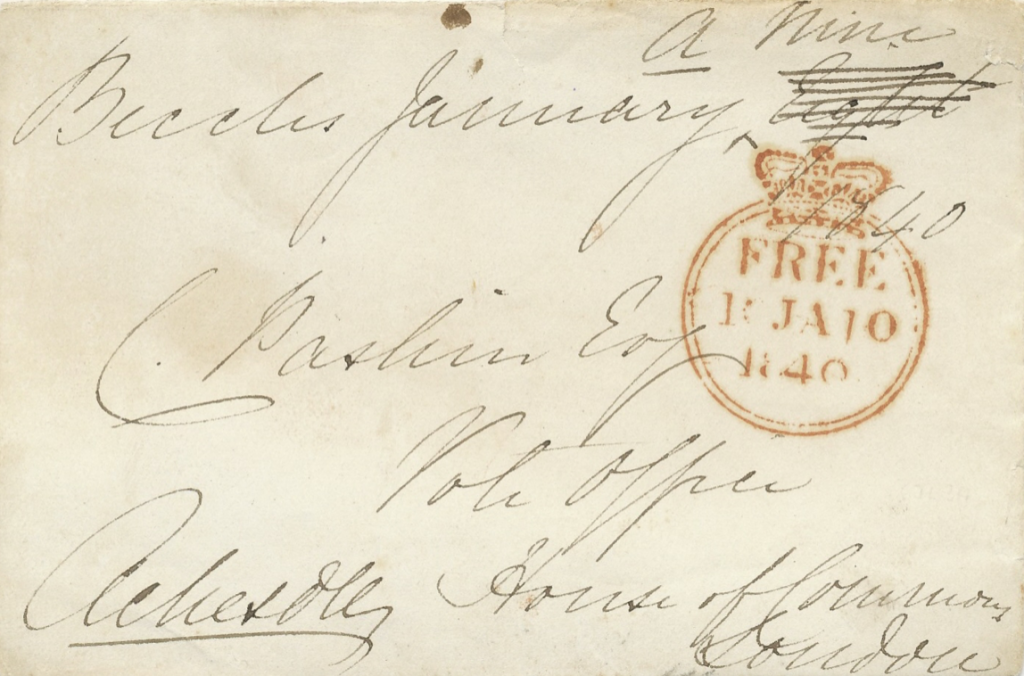 a Nine
Beccles January ^ Eight
1840
FREE
10 JA 10
1840
C. Paskin Esq
Vote Office
House of Commons
London